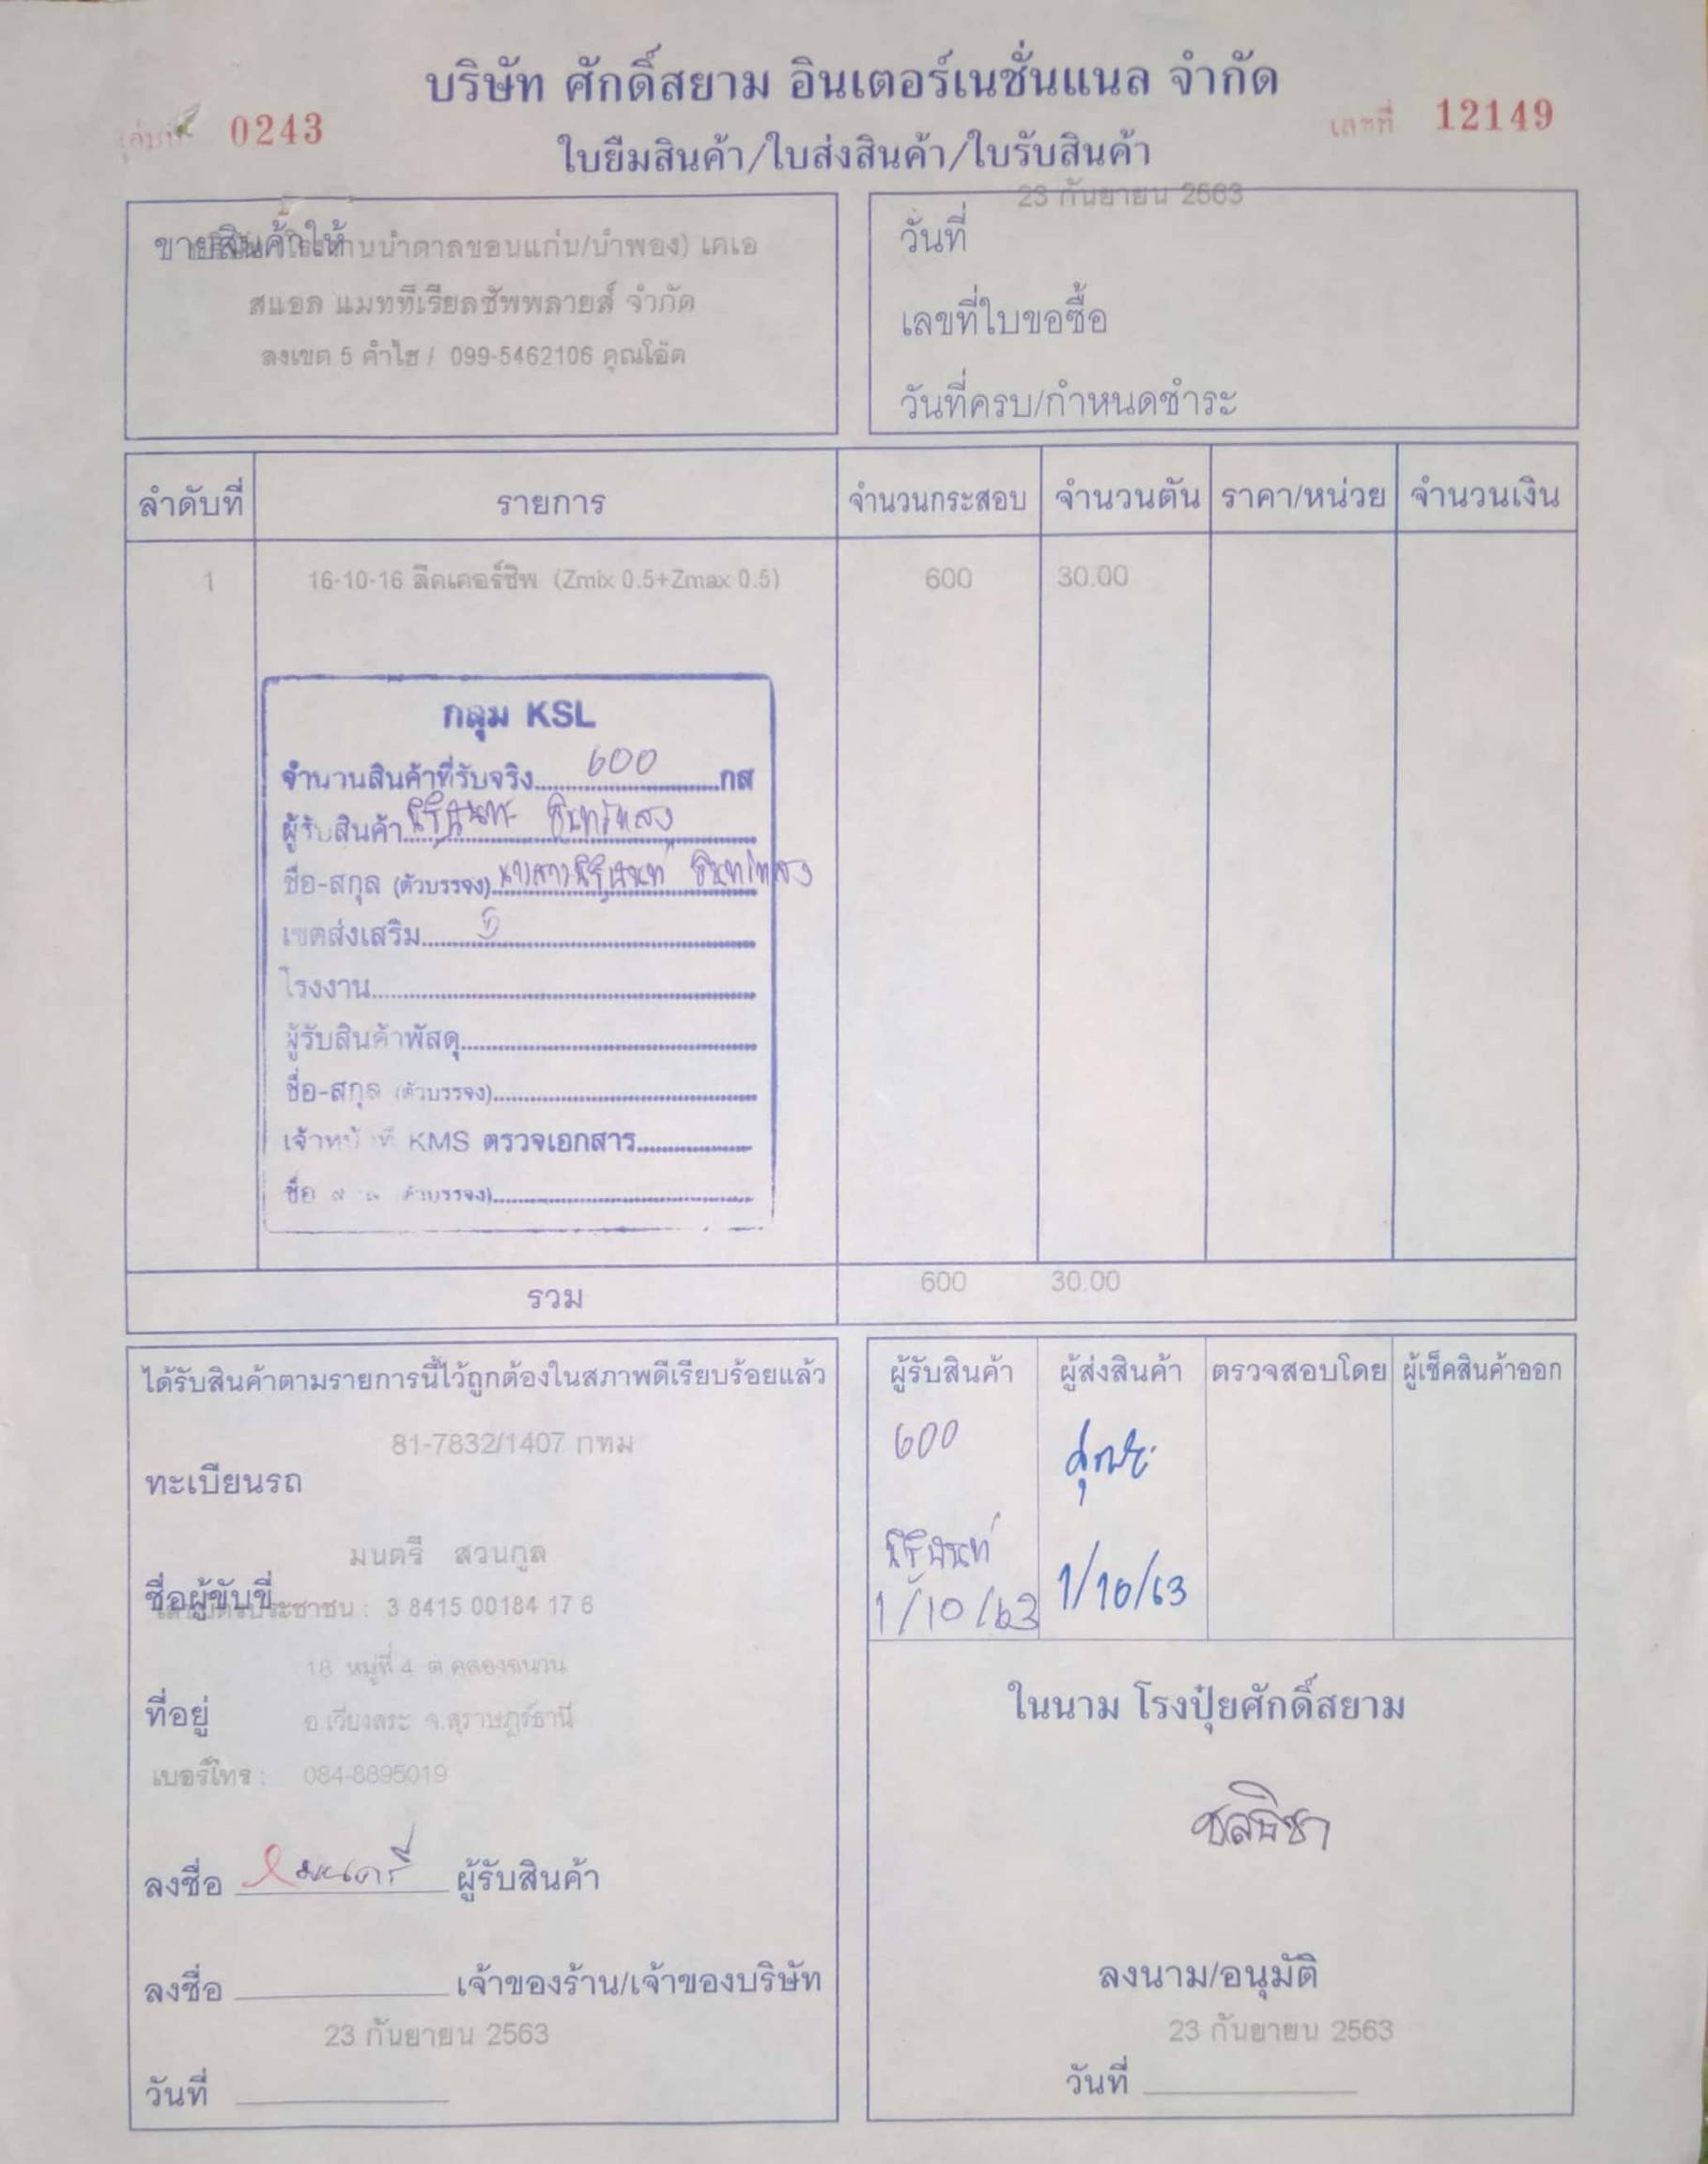 บริษัท ศักดิ์สยาม อินเตอร์เนชั่นแนล จำกัด
เล่มที่ 0243
เลขที่ 12149
ใบยืมสินค้า/ใบส่งสินค้า/ใบรับสินค้า
ขายสินค้าให้ น้ำตาลขอนแก่น/น้ำพอง) เคเอ
สแอล แมททีเรียลซัพพลายส์ จำกัด
ลงเขต 5 คำไฮ / 099-5462106 คุณโอ๊ต
23 กันยายน 2563
วันที่
เลขที่ใบขอซื้อ
วันที่ครบ/กำหนดชำระ
ลำดับที่ รายการ จำนวนกระสอบ จำนวนตัน ราคา/หน่วย จำนวนเงิน
1 16-10-16 ลีดเคอร์ชิพ (Zmix 0.5+Zmax 0.5) 600 30.00
กลุ่ม KSL
จำนวนสินค้าที่รับจริง 600 กส
ผู้รับสินค้า
ชื่อ-สกุล (ตัวบรรจง)
เขตส่งเสริม 5
โรงงาน
ผู้รับสินค้าพัสดุ
ชื่อ-สกุล (ตัวบรรจง)
เจ้าหน้าที่ KMS ตรวจเอกสาร
ชื่อ-สกุล (ตัวบรรจง)
รวม 600 30.00
ได้รับสินค้าตามรายการนี้ไว้ถูกต้องในสภาพดีเรียบร้อยแล้ว
81-7832/1407 กทม
ทะเบียนรถ
มนตรี สวนกูล
ชื่อผู้ขับขี่
เลขบัตรประชาชน : 3 8415 00184 17 6
18 หมู่ที่ 4 ต.คลองฉนวน
ที่อยู่ อ.เวียงสระ จ.สุราษฎร์ธานี
เบอร์โทร : 084-8895019
ลงชื่อ มนตรี ผู้รับสินค้า
ลงชื่อ เจ้าของร้าน/เจ้าของบริษัท
23 กันยายน 2563
วันที่
ผู้รับสินค้า ผู้ส่งสินค้า ตรวจสอบโดย ผู้เช็คสินค้าออก
600
1/10/63 1/10/63
ในนาม โรงปุ๋ยศักดิ์สยาม
ชลธิชา
ลงนาม/อนุมัติ
23 กันยายน 2563
วันที่